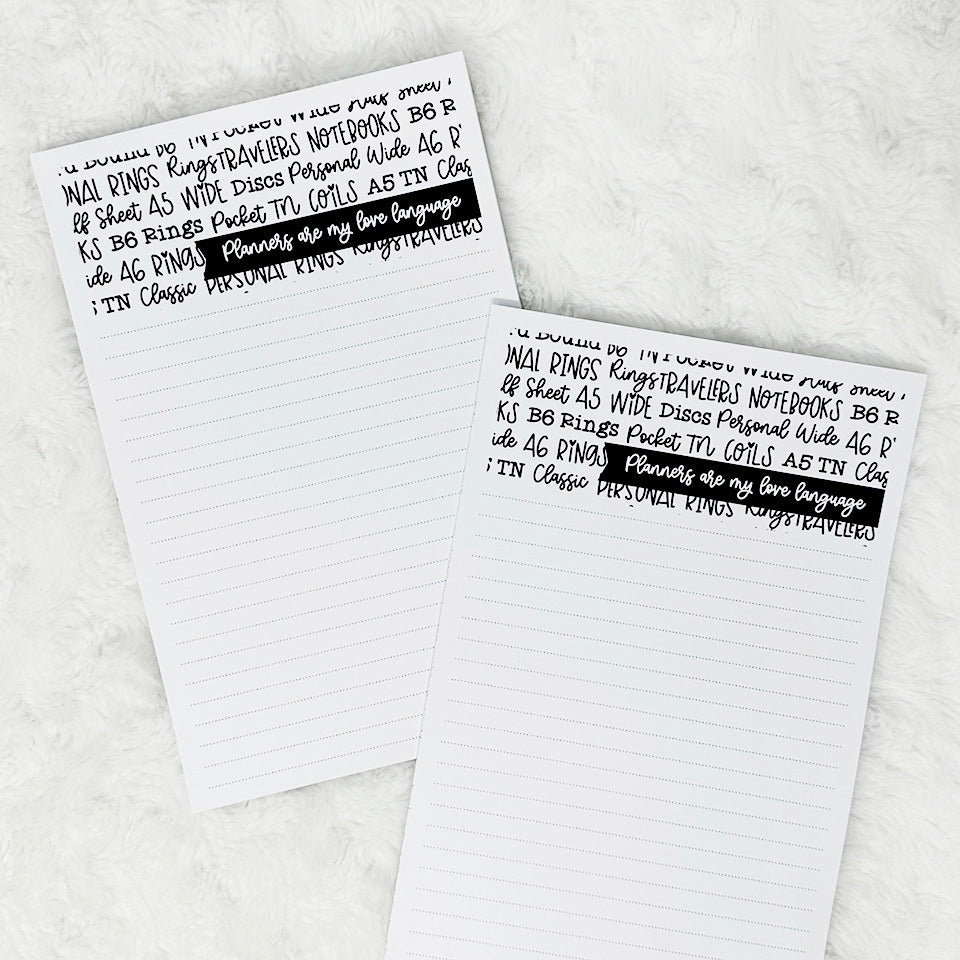 Bound B6 TN Pocket Wide Half Sheet
ONAL RINGS Rings TRAVELERS NOTEBOOKS B6 R
lf Sheet A5 WIDE Discs Personal Wide A6 R
KS B6 Rings Pocket TN COILS A5 TN Clas
ide A6 RINGS Planners are my love language
TN Classic PERSONAL RINGS Rings TRAVELERS
Bound B6 TN Pocket Wide Half Sheet
ONAL RINGS Rings TRAVELERS NOTEBOOKS B6 R
lf Sheet A5 WIDE Discs Personal Wide A6 R
KS B6 Rings Pocket TN COILS A5 TN Clas
ide A6 RINGS Planners are my love language
TN Classic PERSONAL RINGS Rings TRAVELERS